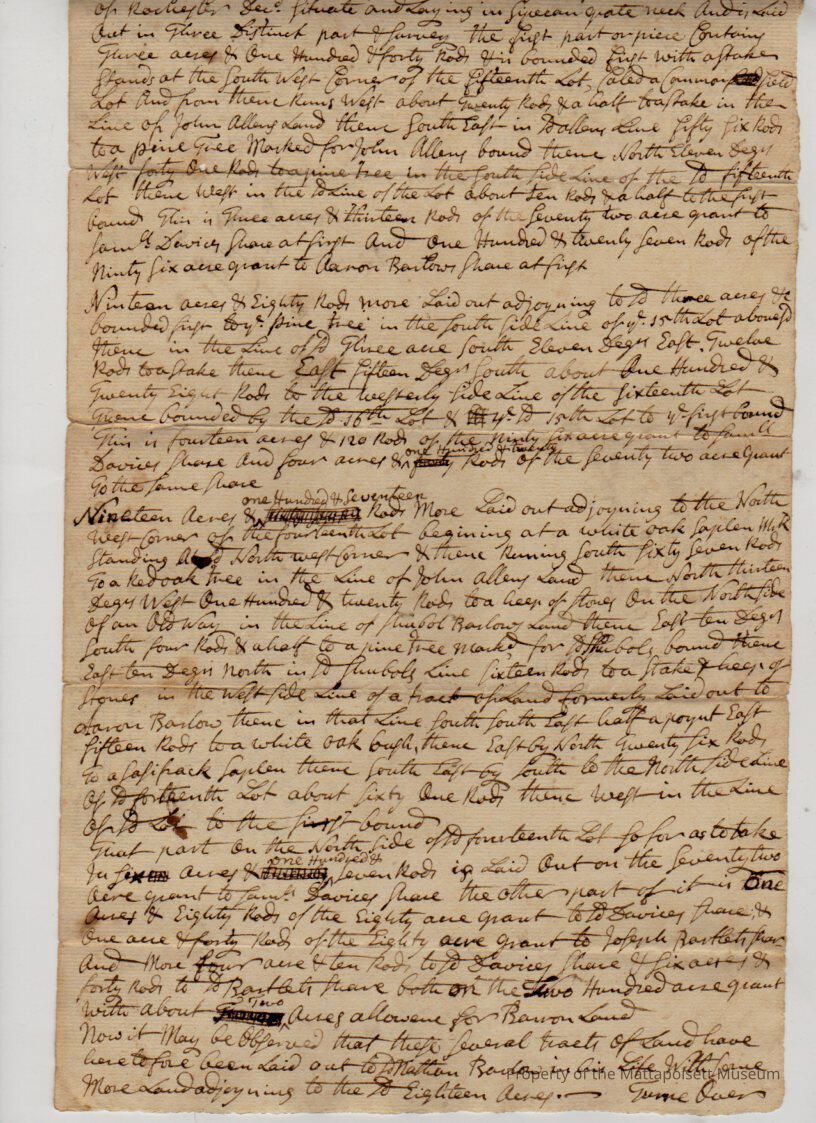 of Rochester Decd. Situate and Laying in Sipecan grate neck And is Laid
Out in Three Distinct part & Survey the first part or piece Contains
Three acres & One Hundred & forty Rods & is bounded first with a stake
Stands at the South West Corner of the fifteenth Lot Caled a Common field
Lot And from thence Runs West about Twenty Rods & a half to a stake in the
Line of John Allens Land thence South East in sd allens Line fifty Six Rods
to a pine Tree Marked for John Allens bound thence North Eleven Degrs
West forty One Rods to a pine tree in the South Side Line of the sd fifteenth
Lot thence West in the sd Line of the Lot about Ten Rods & a half to the first
bound This is Three acres & thirteen Rods of the Seventy two acre grant to
Samll. Davices Share at first And One Hundred & twenty Seven Rods of the
Ninty Six acre grant to Aaron Barlows Share at first
Ninteen acres & Eighty Rods more Laid out adjoyning to sd three acres &c
bounded first to ye. pine tree in the South Side Line of ye. 15th Lot abovesd
thence in the Line of sd Three acre South Eleven Degrs East Twelve
Rods to a stake thence East fifteen Degrs South about One Hundred &
Twenty Eight Rods to the westerly Side Line of the Sixteenth Lot
Thence bounded by the sd 16th Lot & ye. sd 15th Lot to ye first bound
This is fourteen acres & 120 Rods of the Ninty Six acre grant to Samll
one Hundred & twenty
Davices Share And four acres & Rods of the Seventy two acre grant
To the Same Share
one Hundred & Seventeen
Nineteen Acres & Rods More Laid out adjoyning to the North
West Corner of the fourteenth Lot begining at a white oak Saplen Mrk
Standing North west Corner & thence Runing South Sixty Seven Rods
To a Red oak Tree in the Line of John Allens Land thence North thirteen
Degrs West One Hundred & twenty Rods to a heep of stones On the North Side
Of an Old Way in the Line of Shubol Barlows Land thence East ten Degrs
South four Rods & a half to a pine tree marked for sd Shubols bound thence
East ten Degrs North in sd Shubols Line Sixteen Rods to a Stake & heep of
Stones in the West Side Line of a track of Land formerly Laid out to
Aaron Barlow thence in that Line South South East half a poynt East
fifteen Rods to a white oak bush, thence East by North Twenty Six Rods
To a Sasifrack Saplen thence South East by South to the North Side Line
Of sd forteenth Lot about Sixty One Rods thence West in the Line
Of sd Lot to the first bound
That part on the North Side of sd fourteenth Lot so for as to take
one Hundred &
In Six acres & Seven Rods is Laid Out on the Seventy two
acre grant to Samll. Davices Share the other part of it is One
Acres & Eighty Rods of the Eighty acre grant to sd Davices Share, &
One acre & forty Rods of the Eighty acre grant to Joseph Bartlets Share
And More four acre & ten Rods to sd Davices Share & Six acres &
forty Rods to sd Bartlets Share both on the Two Hundred acre grant
Two
With about Acres allowene for Barron Land
Now it May be Observed that these Several tracts of Land have
heretofore been Laid out to sd Nathan Barlow in his Life With Some
More Land adjoyning to the sd Eighteen Acres.— Turne Over
Property of the Mattapoisett Museum